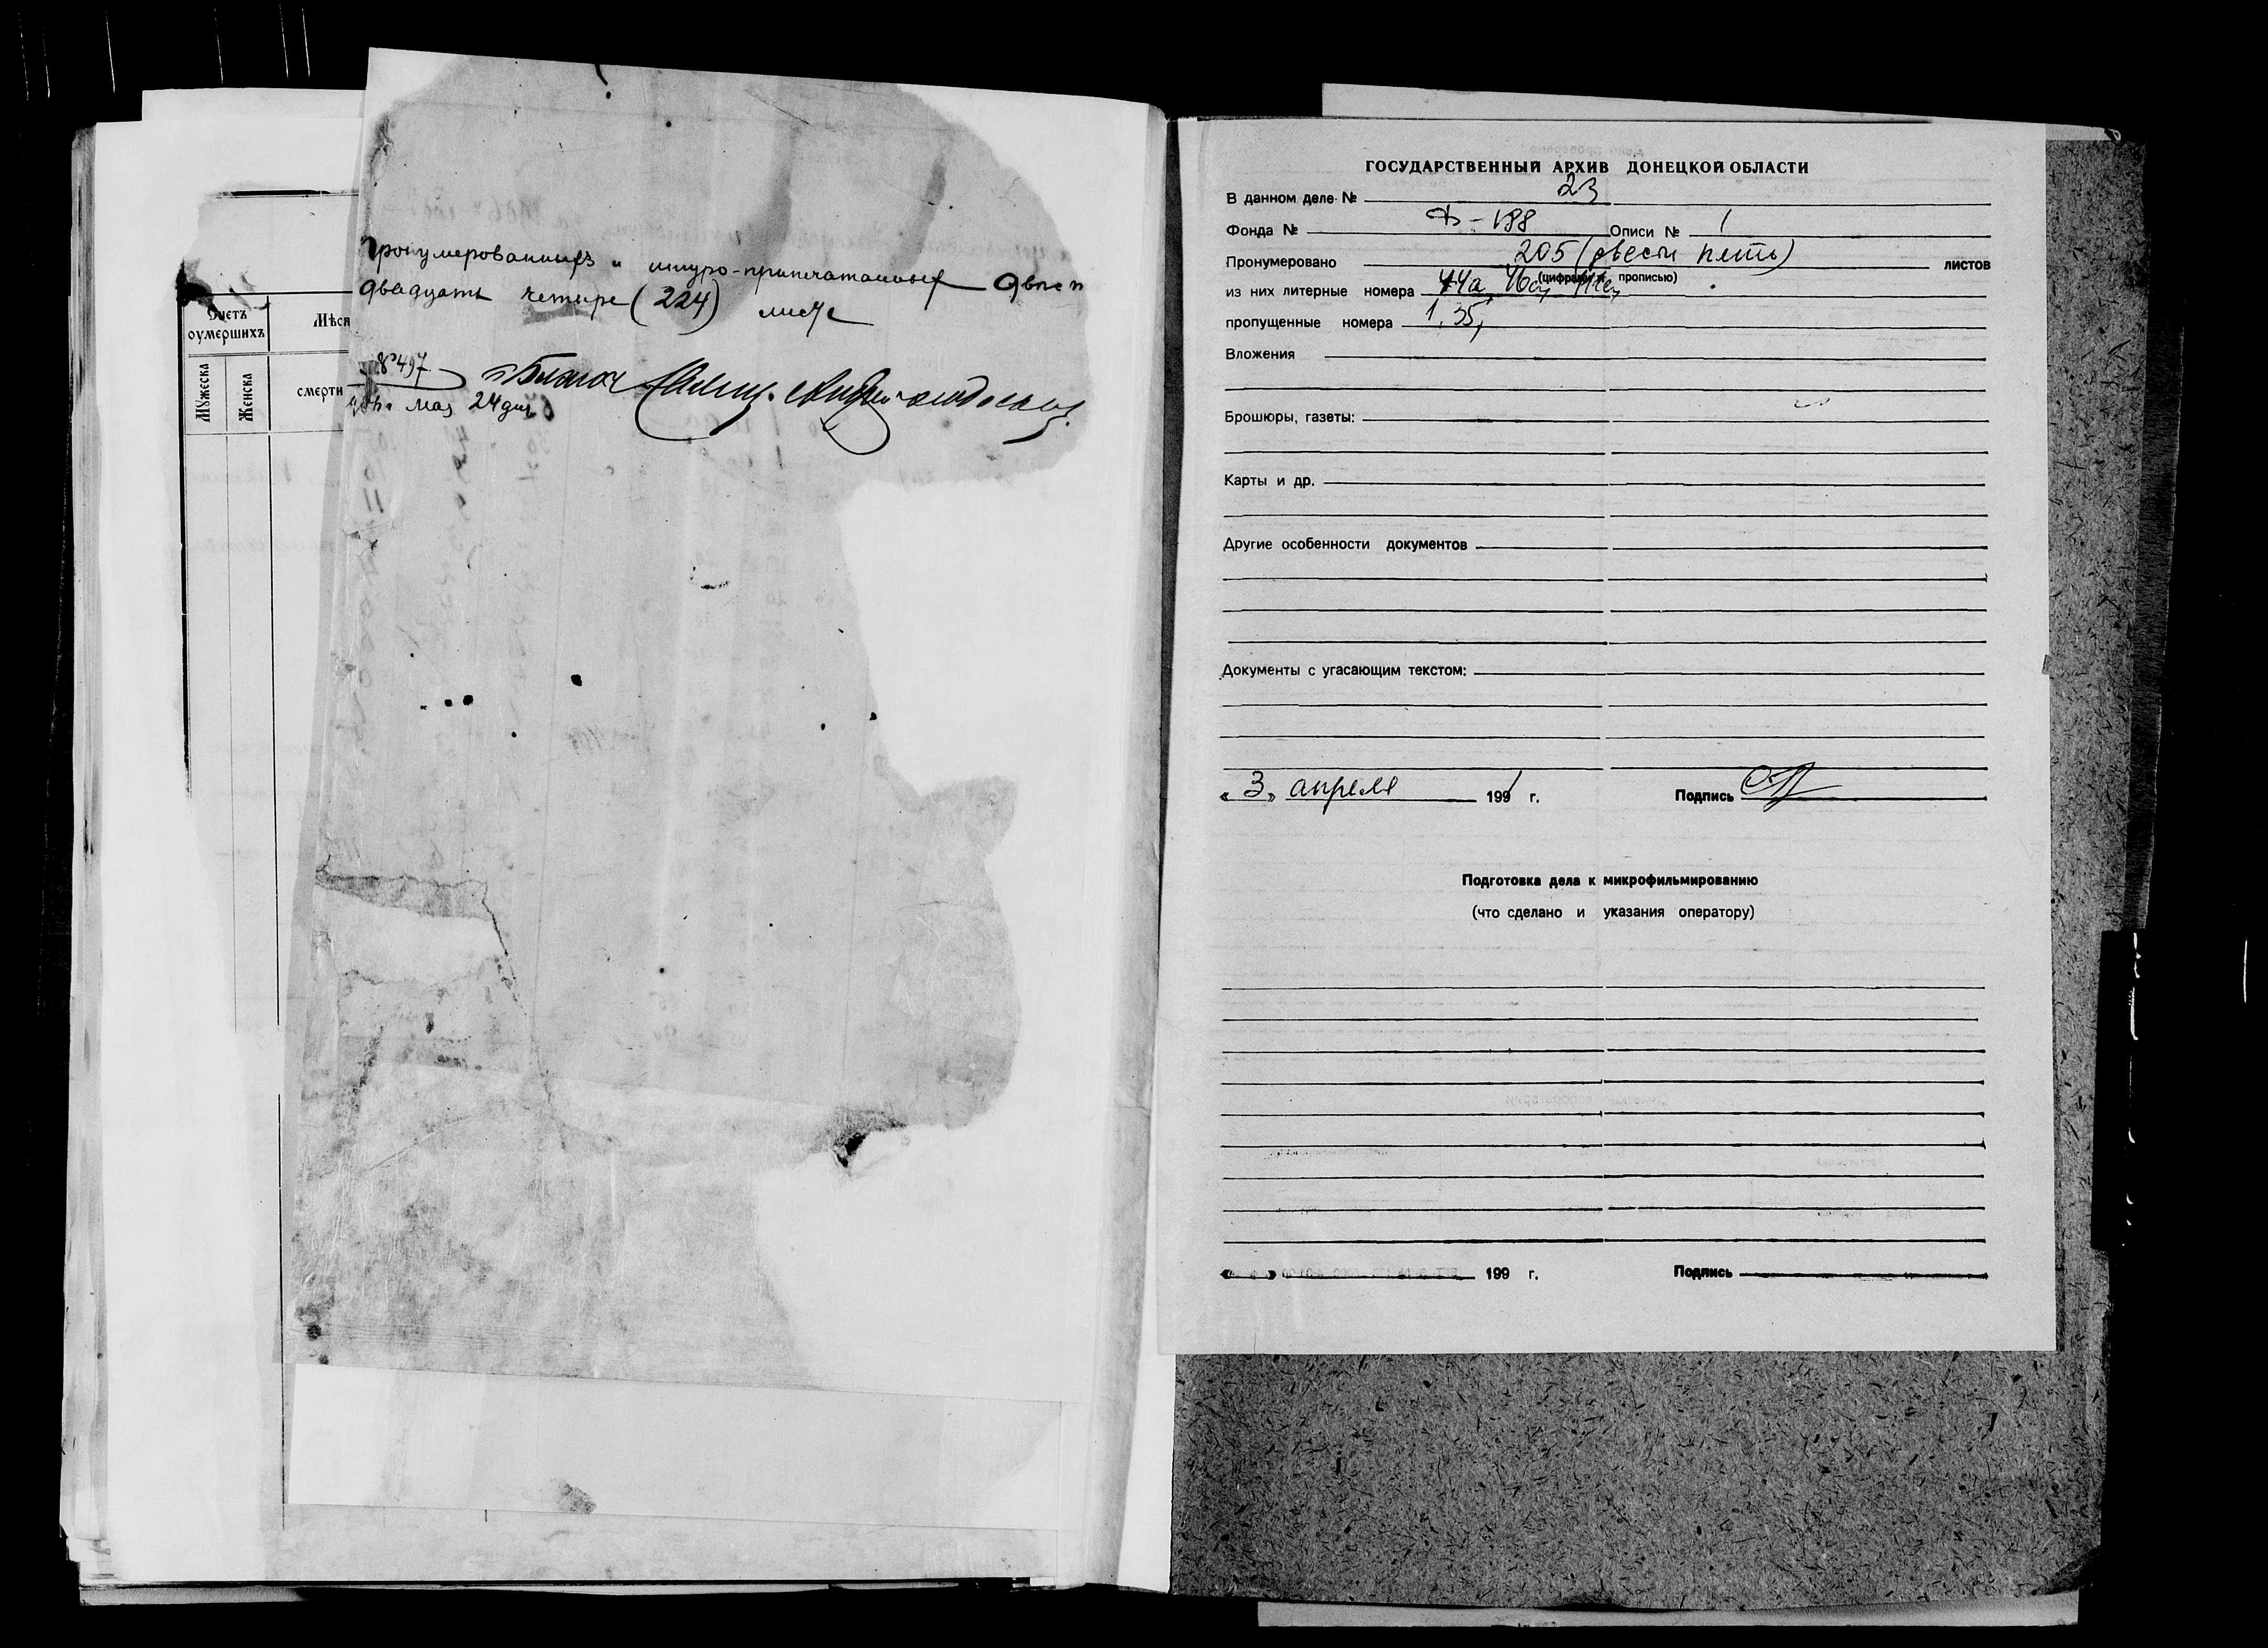 Счетъ
оумершихъ
Мѣся
Мꙋжеска
Женска
смерти
Пронумерованныхъ и шнуро-припечатанныхъ двѣст
двадцать четыре (224) листа
№ 497
мая 24 дня
Благоч. Свящ.
ГОСУДАРСТВЕННЫЙ АРХИВ ДОНЕЦКОЙ ОБЛАСТИ
В данном деле № 23
Фонда № Ф-188 Описи № 1
Пронумеровано 205 (двести пять) листов
(цифрами и прописью)
из них литерные номера 44а
пропущенные номера 1, 35,
Вложения
Брошюры, газеты:
Карты и др.
Другие особенности документов
Документы с угасающим текстом:
«3» апреля 1991 г. Подпись
Подготовка дела к микрофильмированию
(что сделано и указания оператору)
« » 199 г. Подпись